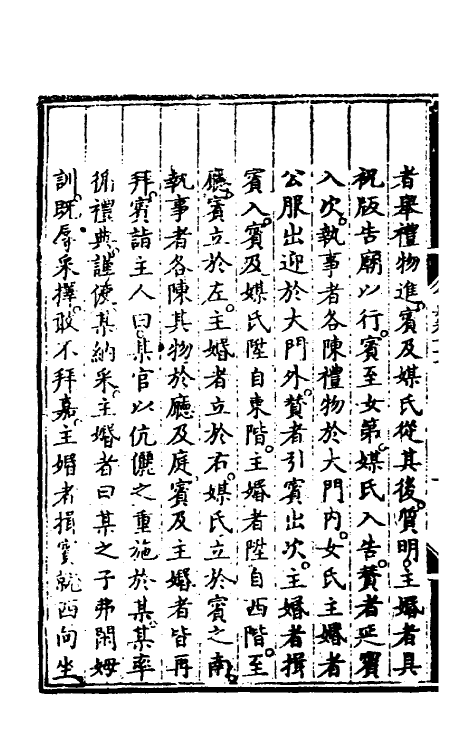 者舉禮物進賓及媒氏從其後質明主婚者具
祝版告廟以行賓至女第媒氏入告賛者延賓
入次執事者各陳禮物於大門內女氏主婚者
公服出迎於大門外賛者引賓出次主婚者揖
賓入賓及媒氏陞自東階主婚者陞自西階至
廳賓立於左主婚者立於右媒氏立於賓之南
執事者各陳其物於廳及庭賓及主婚者皆再
拜賓詣主人曰某官以伉儷之重施於某某率
循禮典謹使某納采主婚者曰某之子弗閑姆
訓既辱采擇敢不拜嘉主婚者揖賓就西向坐